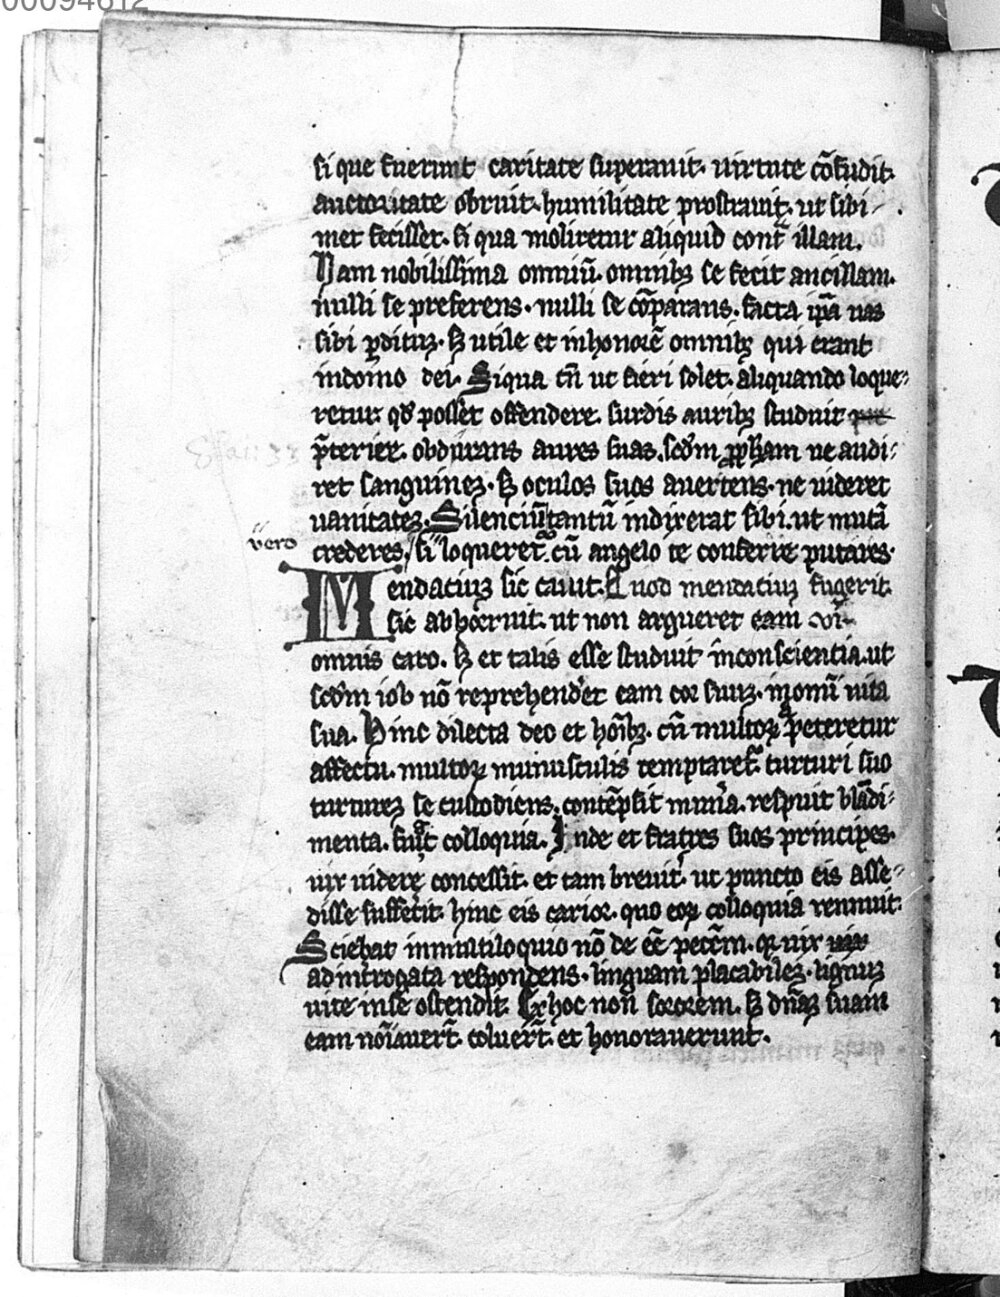 00094612
si que fuerunt caritate superauit. uirtute cōfudit.
auctoritate obruit. humilitate prostrauit. ut sibi
met fecisset. si qua moliretur aliquid cont̄ illam.
Nam nobilissima omniū. omnibꝫ se fecit ancillam.
nulli se preferens. nulli se cōparans. facta ip̄a uas
sibi ꝑdituꝫ. sꝫ utile et inhonorē omnibꝫ qui erant
indomo dei. Siqua tn̄ ut fieri solet. aliquando loque
retur qd̛ posset offendere. surdis auribꝫ studuit
p̄terire. obdurans aures suas. scd̛m ꝓph̄am ne audi
ret sanguineꝫ. sꝫ oculos suos auertens. ne uideret
uanitateꝫ. Silenciū tantū indixerat sibi. ut mutā
vero
crederes, si loqueret̄. cū angelo te conferre putares.
Mendaciuꝫ sic cauit. Quod mendaciuꝫ fugerit.
sic abhorruit. ut non argueret eam
omnis caro. sꝫ et talis esse studuit inconscientia. ut
scd̛m iob nō reprehenderet eam cor suuꝫ. inomī uita
sua. Hinc dilecta deo et hōibꝫ. cū multoꝝ peteretur
affectu. multoꝝ munusculis temptaret̄. turturi suo
turtureꝫ se custodiens. contēpsit mun̄a. respuit blādi
menta. colloquia. Inde et fratres suos principes.
uix uidere concessit. et tam breuit̛. ut puncto eis asse
disse suffecit. hinc eis carior. quo eoꝝ colloquia rennuit.
Sciebat inmultiloquio nō de eē pecc̄m. uix
ad introgata respondens. linguam placabileꝫ. lignuꝫ
uite inse ostendit. Ex hoc non sororem. sꝫ dn̄aꝫ suam
eam noīauert̄. coluert̄. et honorauerunt.